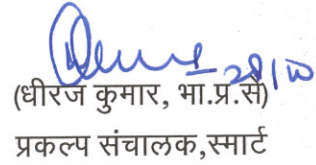 28/10
(धीरज कुमार, भा.प्र.से)
प्रकल्प संचालक,स्मार्ट